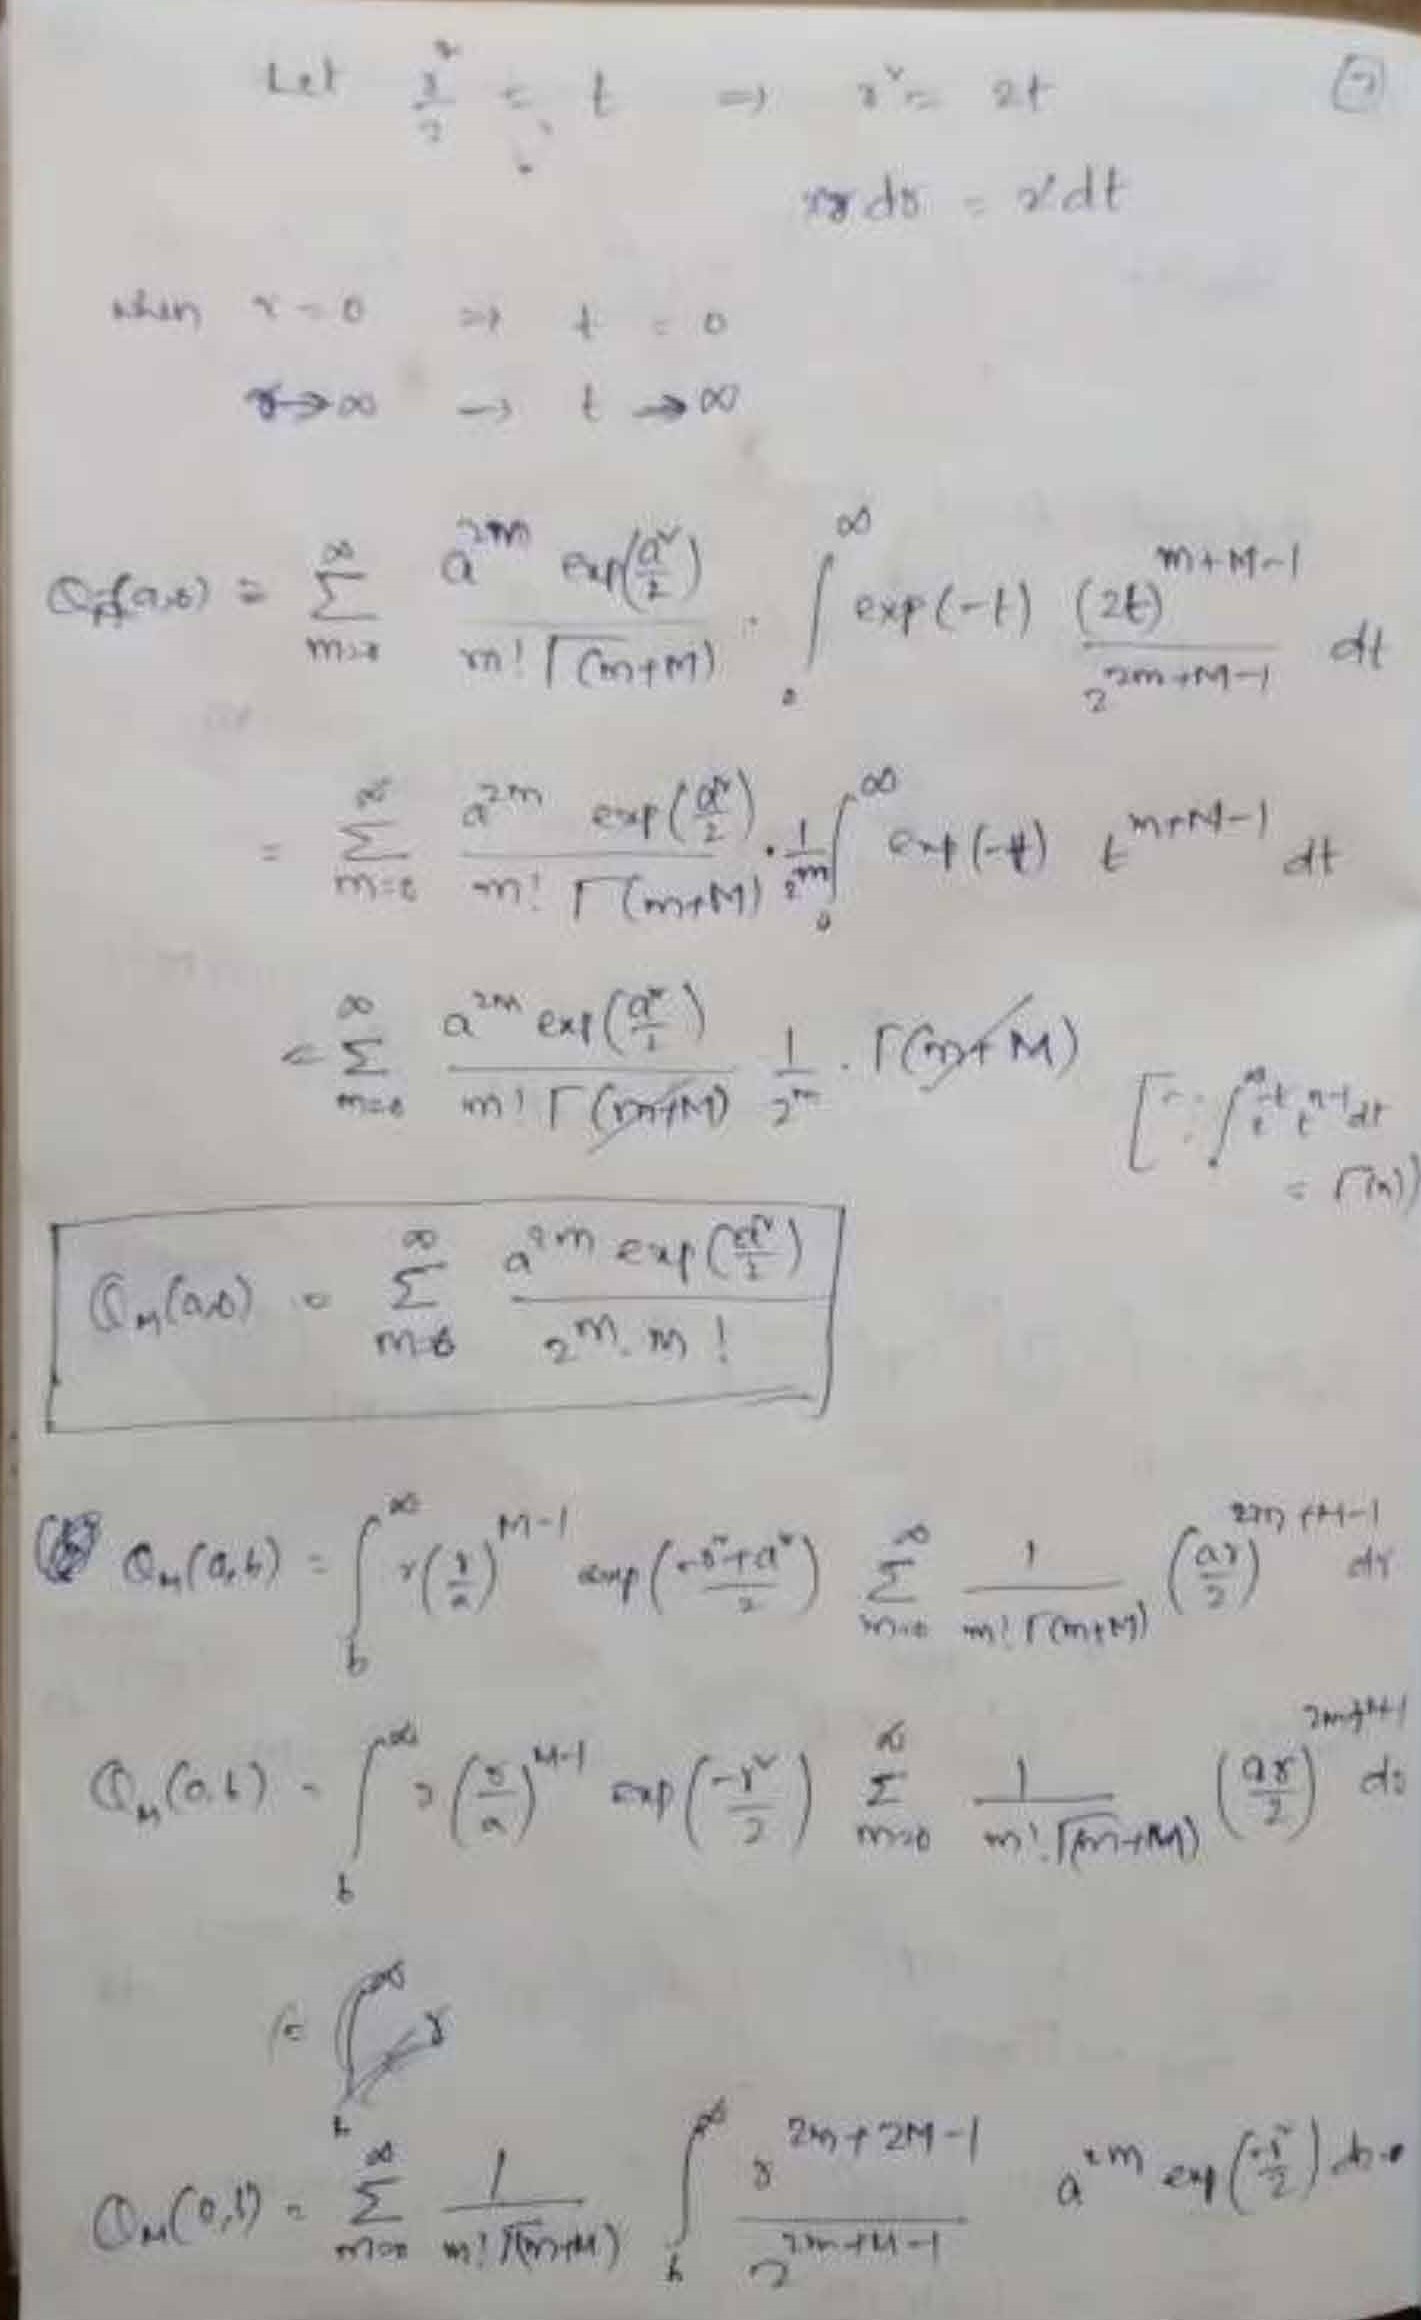 Let r²/2 = t ⇒ r² = 2t
2r dr = 2 dt
when r = 0 ⇒ t = 0
r → ∞ → t → ∞
Q_M(a,0) = ∑_{m=0}^{∞} a^{2m} exp(a²/2) / m! Γ(m+M) · ∫_0^∞ exp(-t) (2t)^{m+M-1} / 2^{2m+M-1} dt
= ∑_{m=0}^{∞} a^{2m} exp(a²/2) / m! Γ(m+M) · 1/2^m ∫_0^∞ exp(-t) t^{m+M-1} dt
= ∑_{m=0}^{∞} a^{2m} exp(a²/2) / m! Γ(m+M) 1/2^m · Γ(m+M)
[∵ ∫_0^∞ e^{-t} t^{n-1} dt
= Γ(n)]
Q_M(a,0) = ∑_{m=0}^{∞} a^{2m} exp(a²/2) / 2^m · m!
Q_M(a,b) = ∫_b^∞ r (r/a)^{M-1} exp(-r²+a²/2) ∑_{m=0}^{∞} 1 / m! Γ(m+M) (ar/2)^{2m+M-1} dr
Q_M(0,b) = ∫_b^∞ r (r/a)^{M-1} exp(-r²/2) ∑_{m=0}^{∞} 1 / m! Γ(m+M) (ar/2)^{2m+M-1} dr
Q_M(0,b) = ∑_{m=0}^{∞} 1 / m! Γ(m+M) ∫_b^∞ r^{2m+2M-1} / 2^{2m+M-1} a^{2m} exp(-r²/2) dr